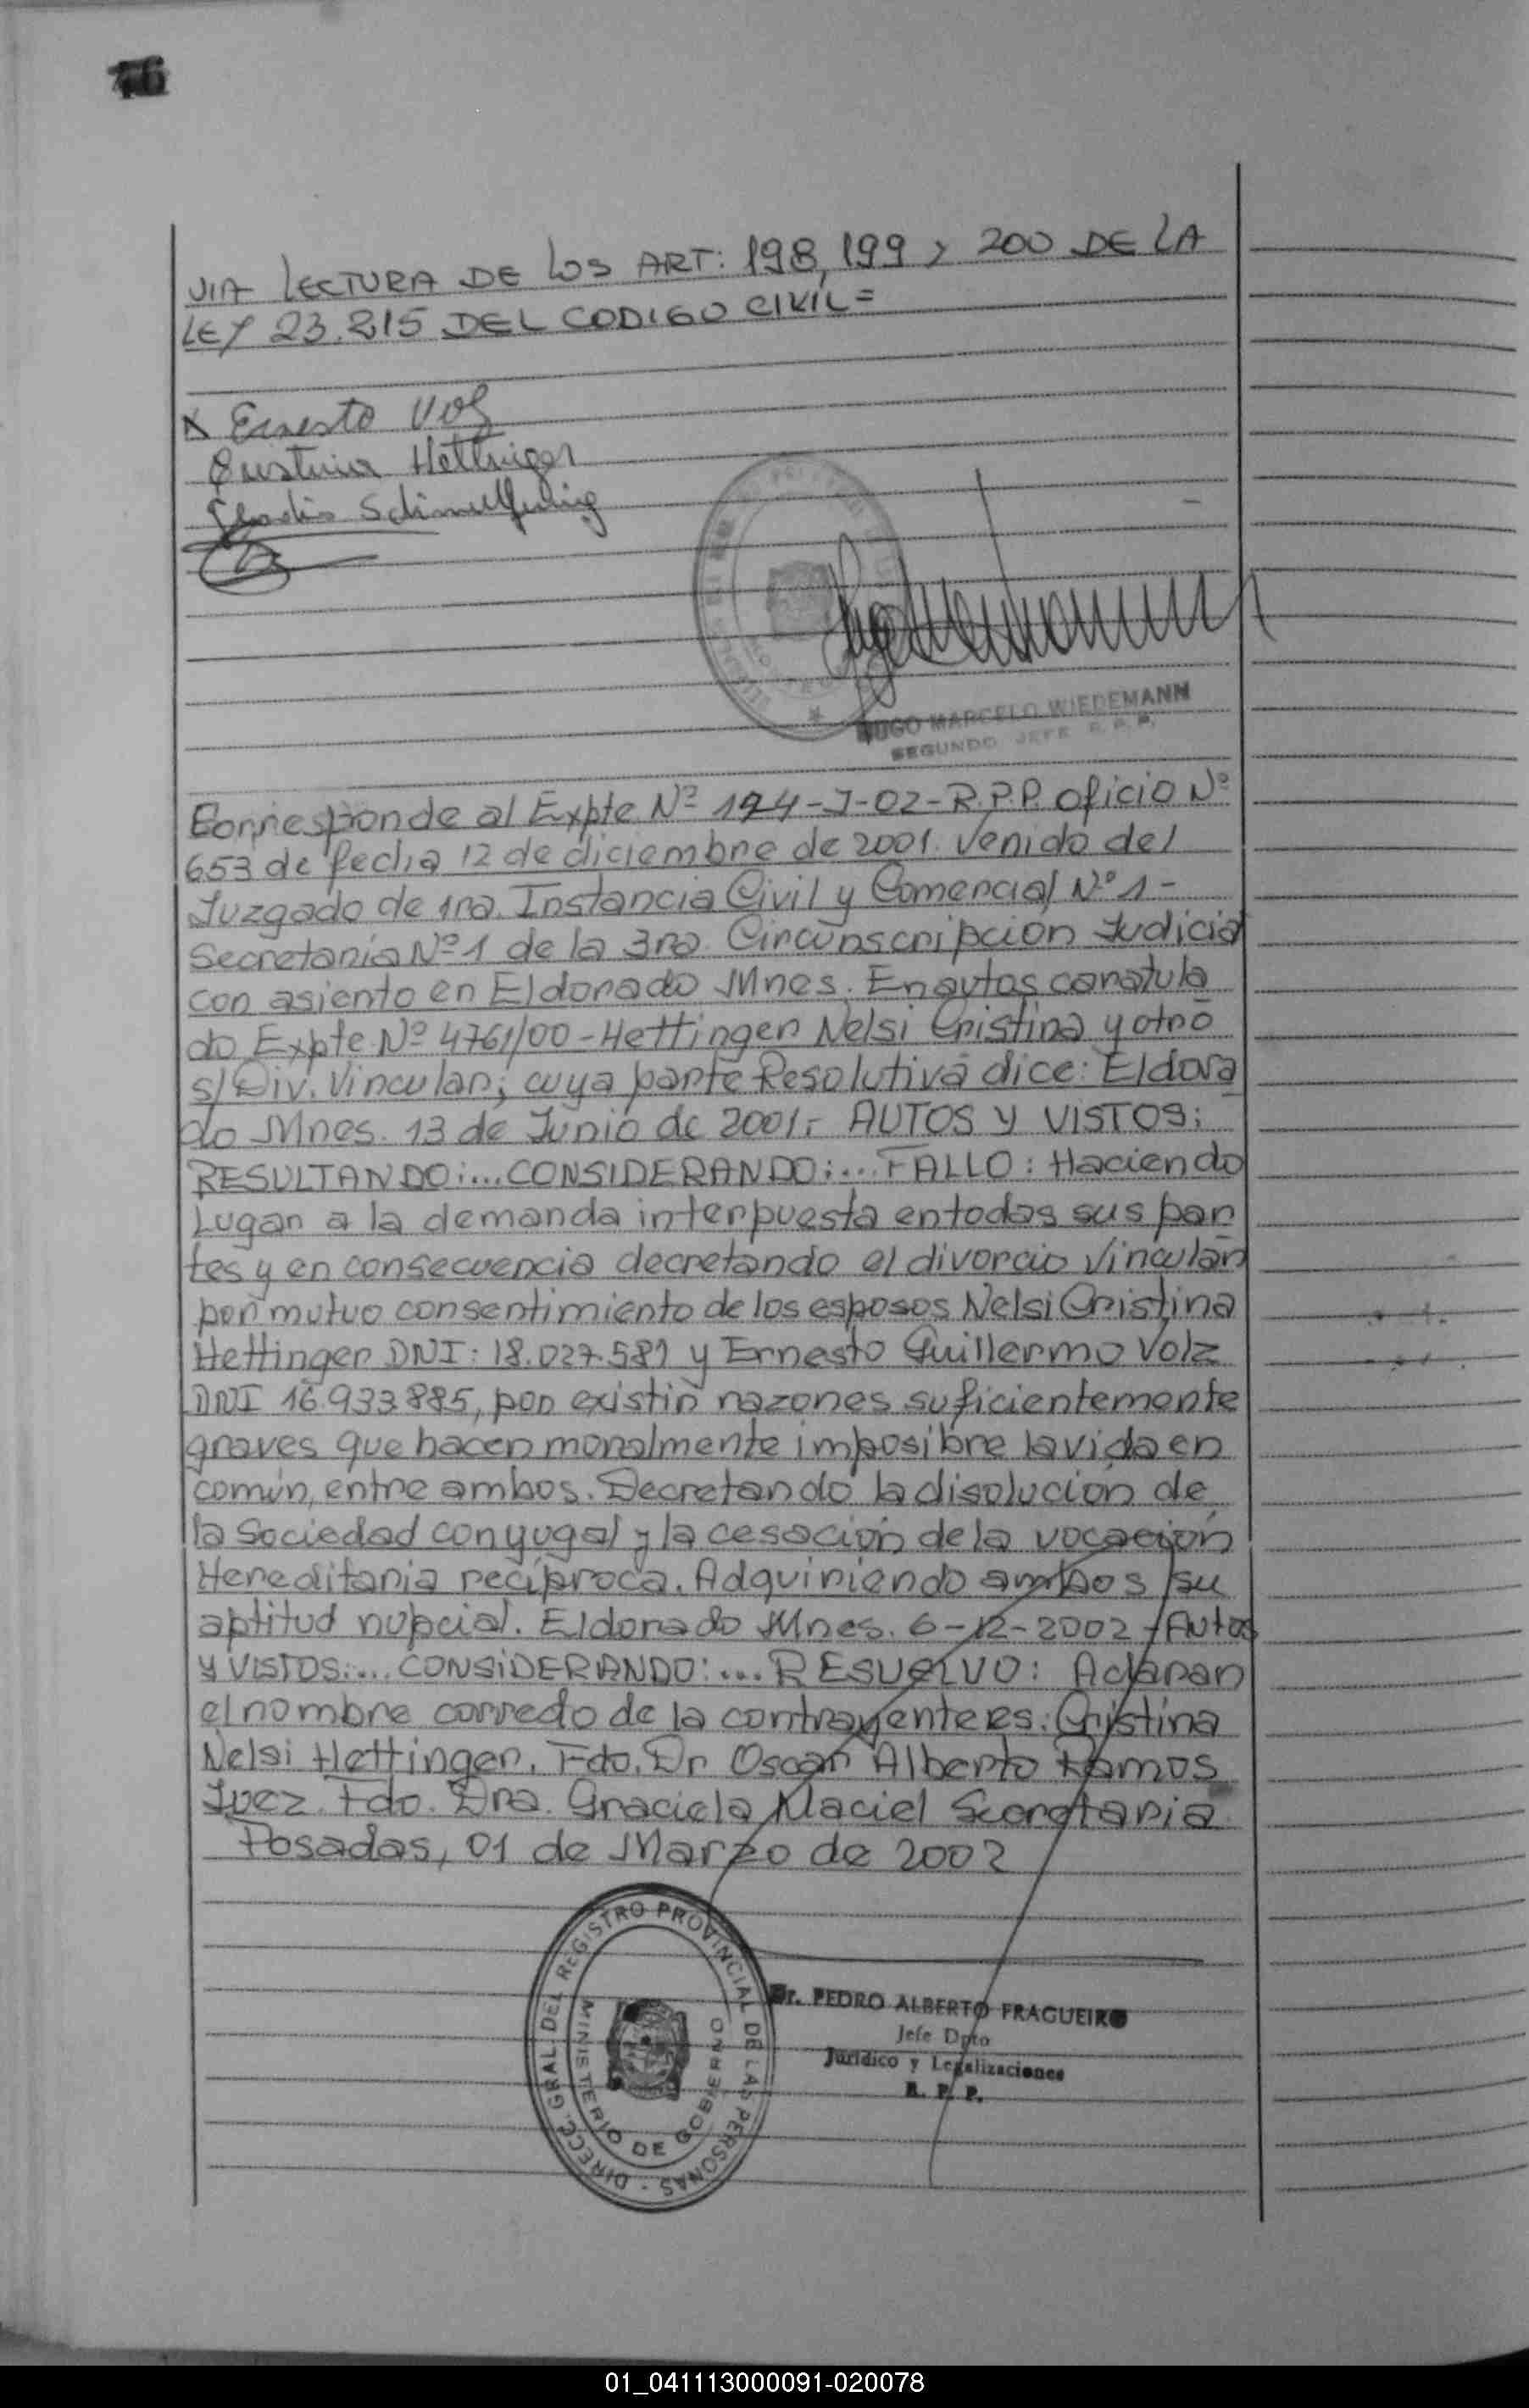 76
VIA LECTURA DE LOS ART: 198, 199 y 200 DE LA
LEY 23.215 DEL CODIGO CIVIL =
X Ernesto Volz
Cristina Hettinger
HUGO MARCELO WIEDEMANN
SEGUNDO JEFE R. P. P.
Corresponde al Expte Nº 194-J-02-R.P.P. oficio Nº
653 de fecha 12 de diciembre de 2001. Venido del
Juzgado de 1ra. Instancia Civil y Comercial Nº 1-
Secretaría Nº 1 de la 3ra. Circunscripción Judicial
con asiento en Eldorado Mnes. En autos caratula
do Expte Nº 4761/00 - Hettinger Nelsi Cristina y otro
s/Div. Vincular; cuya parte Resolutiva dice: Eldora
do Mnes. 13 de Junio de 2001.- AUTOS Y VISTOS:
RESULTANDO:... CONSIDERANDO:... FALLO: Haciendo
Lugar a la demanda interpuesta en todas sus par
tes y en consecuencia decretando el divorcio Vincular
por mutuo consentimiento de los esposos Nelsi Cristina
Hettinger DNI: 18.027.581 y Ernesto Guillermo Volz
DNI 16.933.885, por existir razones suficientemente
graves que hacen moralmente imposibre la vida en
común, entre ambos. Decretando la disolución de
la Sociedad conyugal y la cesación de la vocación
Hereditaria recíproca. Adquiriendo ambos su
aptitud nupcial. Eldorado Mnes. 6-12-2002 - Autos
y VISTOS:... CONSIDERANDO:... RESUELVO: Aclarar
el nombre correcto de la contrayente es: Cristina
Nelsi Hettinger. Fdo. Dr Oscar Alberto Ramos
Juez. Fdo. Dra. Graciela Maciel Secretaria
Posadas, 01 de Marzo de 2002
DIRECC. GRAL. DEL REGISTRO PROVINCIAL DE LAS PERSONAS -
MINISTERIO DE GOBIERNO
Dr. PEDRO ALBERTO FRAGUEIRO
Jefe Dpto
Jurídico y Legalizaciones
R. P. P.
01_041113000091-020078